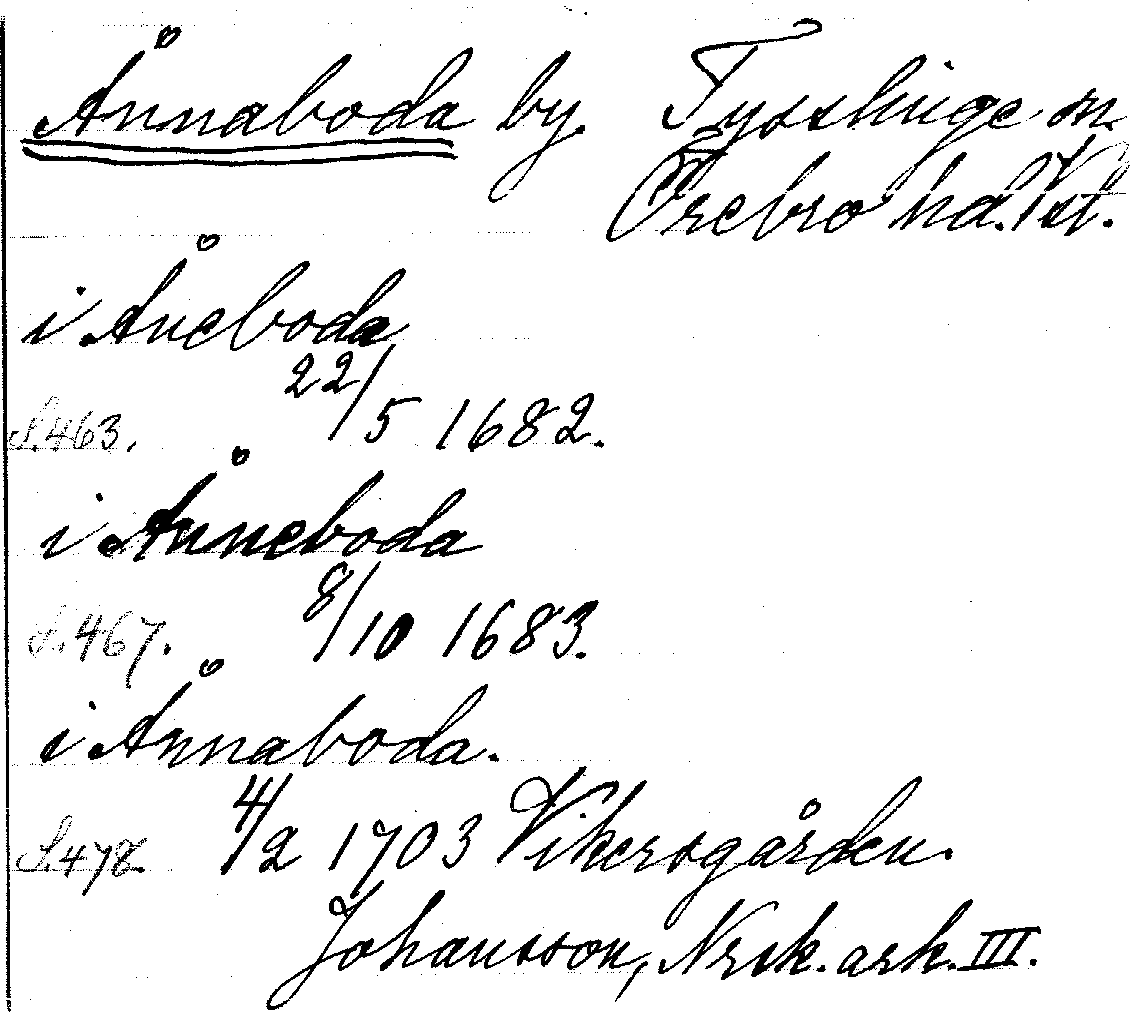 Ånnaboda by. Tysslinge sn.
Örebro hd.
i Åneboda
22/5 1682.
S.463.
i Ånneboda
S.467. 8/10 1683.
i Ånnaboda.
S.478. 4/2 1703 Vikersgården.
Johansson, Nrck. ark. III.